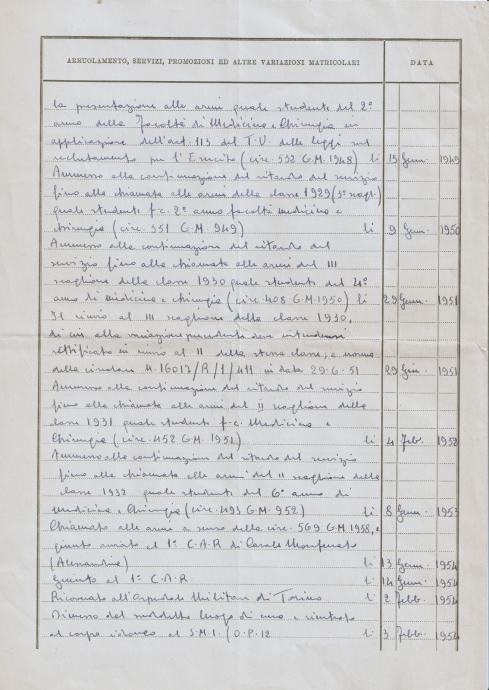 ARRUOLAMENTO, SERVIZI, PROMOZIONI ED ALTRE VARIAZIONI MATRICOLARI DATA
la presentazione alle armi quale studente del 2°
anno della Facoltà di Medicina e Chirurgia in
applicazione dell'art. 113 del T.U. delle leggi sul
reclutamento per l'Esercito (circ. 532 G.M. 1948) li 19 Genn. 1949
Ammesso alla continuazione del ritardo del servizio
fino alla chiamata alle armi della classe 1929 (3° scagl.)
quale studente f.c. 2° anno facoltà medicina e
chirurgia (circ. 351 G.M. 949) li 9 Genn. 1950
Ammesso alla continuazione del ritardo del
servizio fino alla chiamata alle armi del III
scaglione della classe 1930 quale studente del 4°
anno di medicina e chirurgia (circ. 408 G.M. 1950) li 29 Genn. 1951
Il rinvio al III scaglione della classe 1930,
di cui alla variazione precedente deve intendersi
rettificato in rinvio al II della stessa classe, a norma
della circolare N. 16017/R/1/411 in data 29-6-51 29 Giu. 1951
Ammesso alla continuazione del ritardo del servizio
fino alla chiamata alle armi del II scaglione della
classe 1931 quale studente f.c. Medicina e
Chirurgia (circ. 452 G.M. 1951) li 4 Febb. 1952
Ammesso alla continuazione del ritardo del servizio
fino alla chiamata alle armi del II scaglione della
classe 1932 quale studente del 6° anno di
Medicina e Chirurgia (circ. 493 G.M. 952) li 8 Genn. 1953
Chiamato alle armi a senso della circ. 569 G.M. 1958, e
giunto al 1° C.A.R. di Casale Monferrato
(Alessandria) li 13 Genn. 1954
Giunto al 1° C.A.R. li 14 Genn. 1954
Ricoverato all'Ospedale Militare di Torino li 2 Febb. 1954
Dimesso dal suddetto luogo di cura e rientrato
al corpo idoneo al S.M.I. / O.P. 12 li 3 Febb. 1954